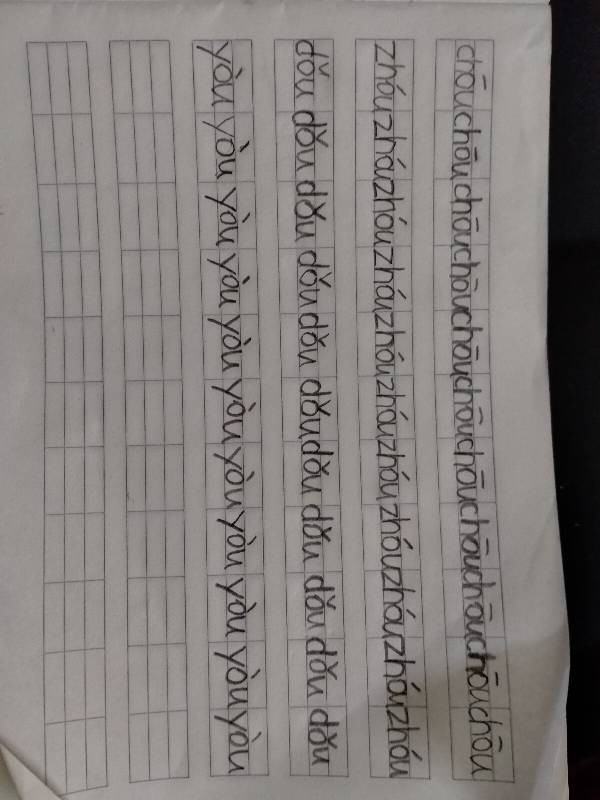 chōuchōu chōuchōuchōuchōuchōuchōuchōuchōuchōu
zhóuzhóuzhóuzhóuzhóuzhóuzhóu zhóuzhóuzhóuzhóu
dǒu dǒu dǒu dǒu dǒu dǒu dǒu dǒu dǒu dǒu dǒu
yòu yòu yòu yòu yòu yòu yòu yòu yòu yòu yòu